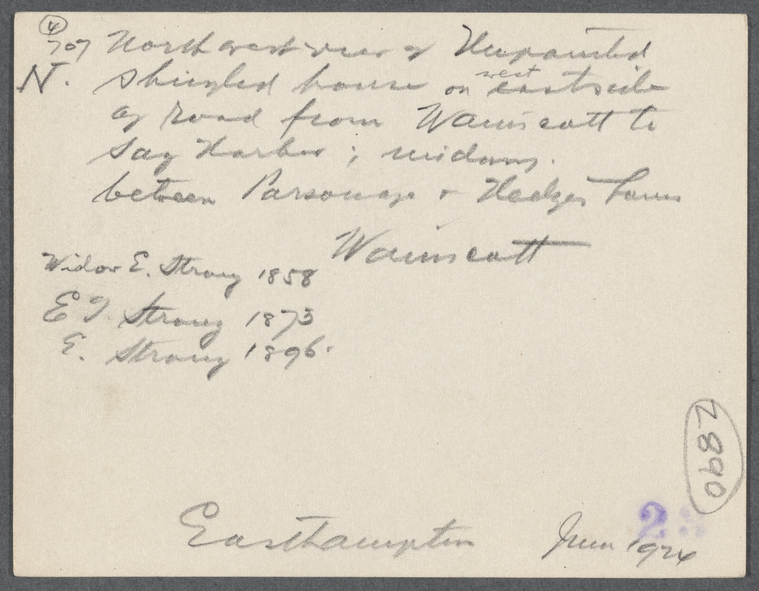 4
707 Northwest view of Unpainted
N. shingled house on west eastside
of road from Wainscott to
Sag Harbor; midway
between Parsonage & Hedges Lanes
Wainscott
Widow E. Strong 1858
E T Strong 1873
E. Strong 1896.
2890
2
Easthampton June 1924